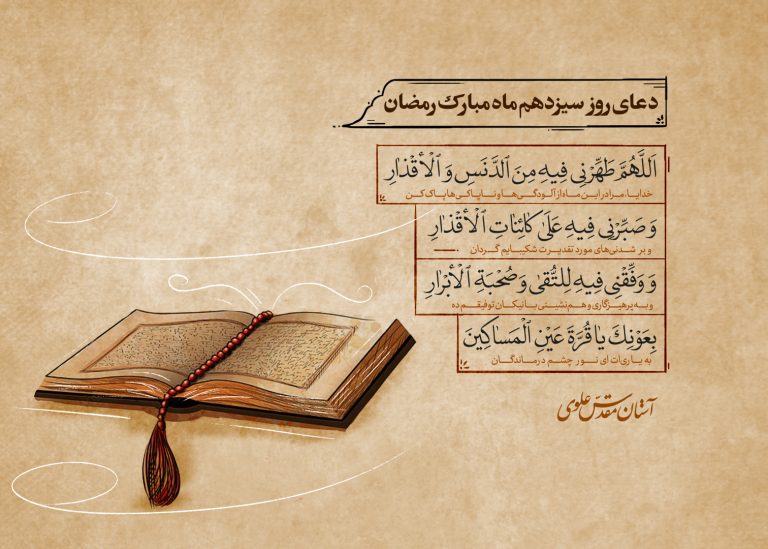 دعای روز سیزدهم ماه مبارک رمضان
اَللَّهُمَّ طَهِّرْنِی فِیهِ مِنَ ٱلدَّنَسِ وَ ٱلْأَقْذَارِ
خدایا، مرا در این ماه از آلودگی‌ها و ناپاکی‌ها پاک کن
وَ صَبِّرْنِی فِیهِ عَلَىٰ كَائِنَاتِ ٱلْأَقْدَارِ
و بر شدنی‌های مورد تقدیرت شکیبایم گردان
وَ وَفِّقْنِی فِیهِ لِلتُّقَىٰ وَ صُحْبَةِ ٱلْأَبْرَارِ
و به پرهیزگاری و هم‌نشینی با نیکان توفیقم ده
بِعَوْنِكَ یَا قُرَّةَ عَیْنِ ٱلْمَسَاكِینَ
به یاری‌ات ای نور چشم درماندگان
آستان مقدّس علوی